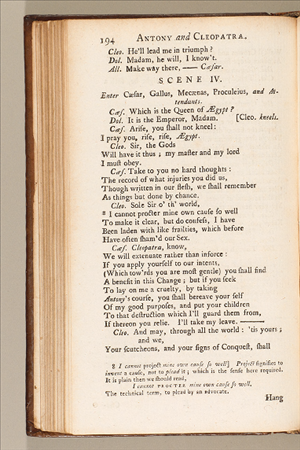 194 ANTONY and CLEOPATRA.
Cleo. He'll lead me in triumph?
Dol. Madam, he will, I know't.
All. Make way there, —— Cæsar.
SCENE IV.
Enter Cæsar, Gallus, Mecænas, Proculeius, and At-
tendants.
Cæs. Which is the Queen of Ægypt?
Dol. It is the Emperor, Madam. [Cleo. kneels.
Cæs. Arise, you shall not kneel:
I pray you, rise, rise, Ægypt.
Cleo. Sir, the Gods
Will have it thus; my master and my lord
I must obey.
Cæs. Take to you no hard thoughts:
The record of what injuries you did us,
Though written in our flesh, we shall remember
As things but done by chance.
Cleo. Sole Sir o' th' world,
8 I cannot procter mine own cause so well
To make it clear, but do confess, I have
Been laden with like frailties, which before
Have often sham'd our Sex.
Cæs. Cleopatra, know,
We will extenuate rather than inforce:
If you apply yourself to our intents,
(Which tow'rds you are most gentle) you shall find
A benefit in this Change; but if you seek
To lay on me a cruelty, by taking
Antony's course, you shall bereave your self
Of my good purposes, and put your children
To that destruction which I'll guard them from,
If thereon you relie. I'll take my leave. ——
Cleo. And may, through all the world: 'tis yours;
and we,
Your scutcheons, and your signs of Conquest, shall
8 I cannot project mine own cause so well] Project signifies to
invent a cause, not to plead it; which is the sense here required.
It is plain then we should read,
I cannot PROCTER mine own cause so well.
The technical term, to plead by an advocate.
Hang